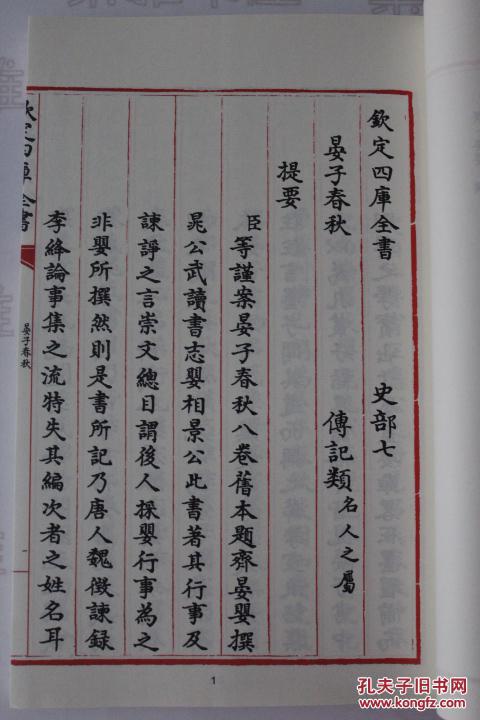 欽定四庫全書　史部七
晏子春秋　傳記類名人之屬
提要
臣等謹案晏子春秋八卷舊本題齊晏嬰撰
晁公武讀書志嬰相景公此書著其行事及
諫諍之言崇文總目謂後人採嬰行事為之
非嬰所撰然則是書所記乃唐人魏徵諫録
李絳論事集之流特失其編次者之姓名耳
欽定四庫全書
晏子春秋
一
1
孔夫子旧书网
www.kongfz.com